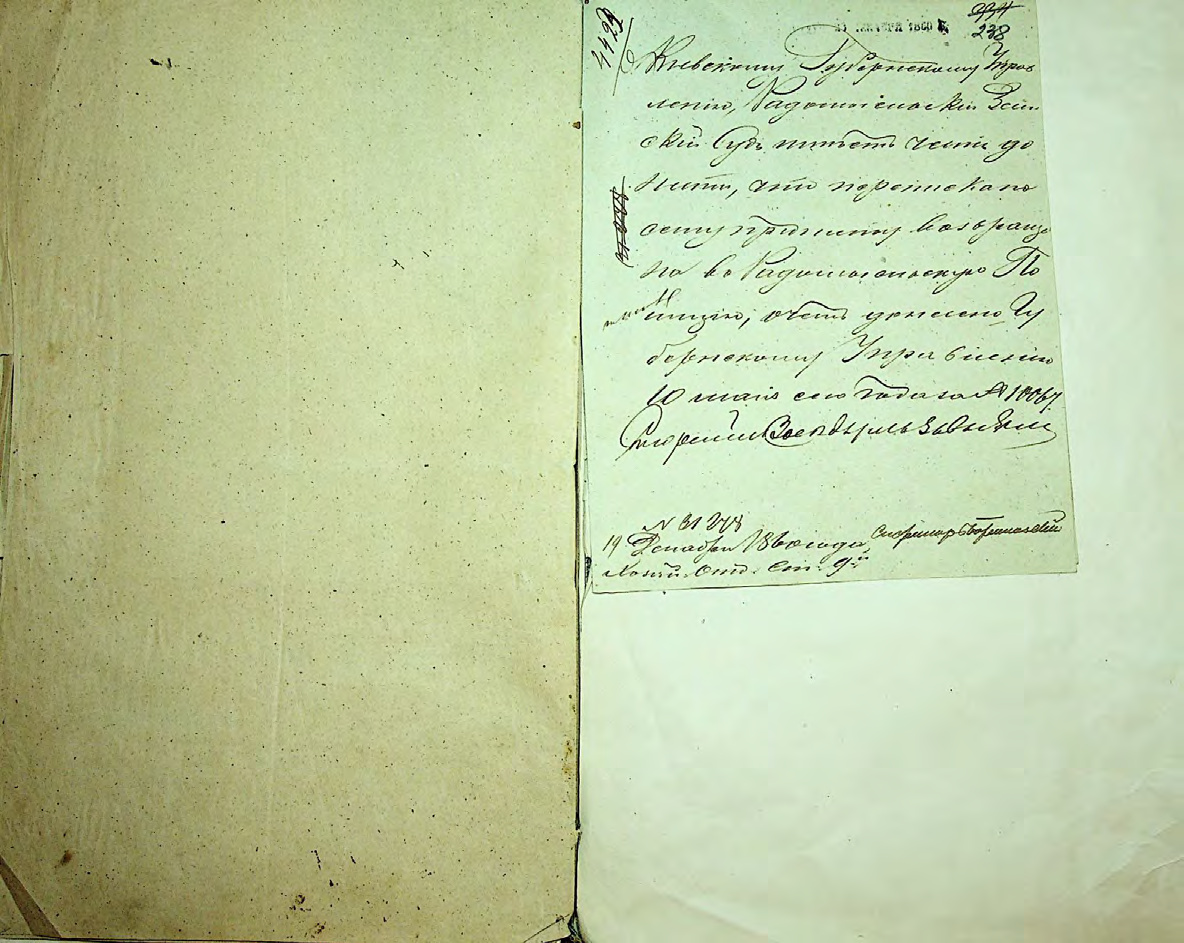 238
ДЕКАБРЯ 1860
Кіевскому Губернскому Прав
ленію, Радомысльскій Зем
скій Судъ имѣетъ честь до
нести, что переписка по
сему предмету возвраще
на въ Радомысльскую По
лицію, о чемъ донесено Гу
бернскому Правленію
10 мая сего года за № 10067.
№ 31278
19 Декабря 1860 года
Секретарь
Хозяй. Отд. Ст. 9й